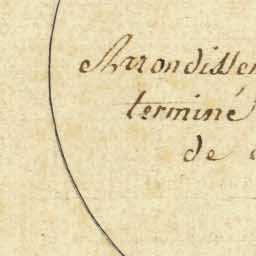 Arrondissem
terminé
de